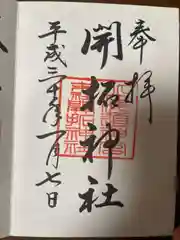 奉拝
開拓神社
平成三十年一月七日